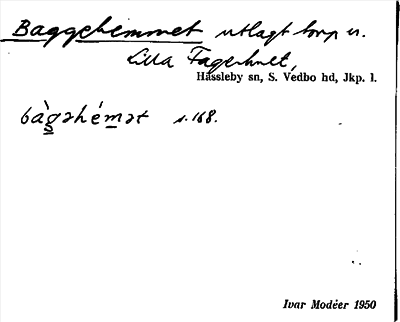 Baggehemmet utlagt torp u.
Lilla Fagerhult,
Hässleby sn, S. Vedbo hd, Jkp. l.
bàgəhémət s.168.
Ivar Modéer 1950